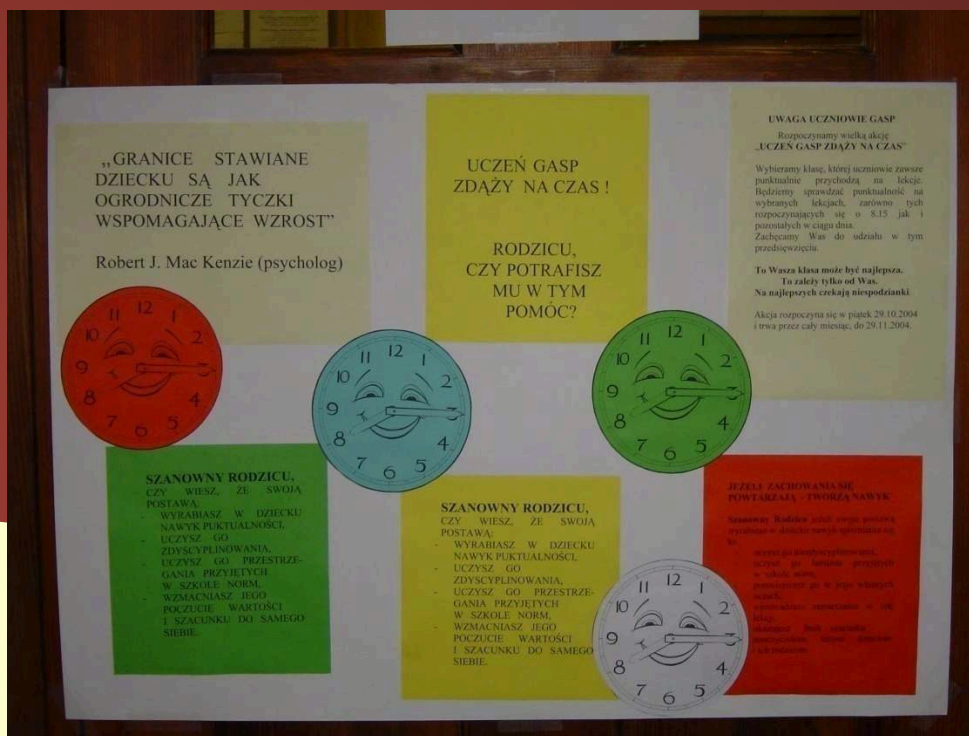 „GRANICE STAWIANE
DZIECKU SĄ JAK
OGRODNICZE TYCZKI
WSPOMAGAJĄCE WZROST”
Robert J. Mac Kenzie (psycholog)
UCZEŃ GASP
ZDĄŻY NA CZAS !
RODZICU,
CZY POTRAFISZ
MU W TYM
POMÓC?
UWAGA UCZNIOWIE GASP
Rozpoczynamy wielką akcję
„UCZEŃ GASP ZDĄŻY NA CZAS”
Wybieramy klasę, której uczniowie zawsze
punktualnie przychodzą na lekcje.
Będziemy sprawdzać punktualność na
wybranych lekcjach, zarówno tych
rozpoczynających się o 8.15 jak i
pozostałych w ciągu dnia.
Zachęcamy Was do udziału w tym
przedsięwzięciu.
To Wasza klasa może być najlepsza.
To zależy tylko od Was.
Na najlepszych czekają niespodzianki
Akcja rozpoczyna się w piątek 29.10.2004
i trwa przez cały miesiąc, do 29.11.2004.
12
1
2
4
5
6
7
8
9
10
11
12
1
2
4
5
6
7
8
9
10
11
12
1
2
4
5
6
7
8
9
10
11
SZANOWNY RODZICU,
CZY WIESZ, ŻE SWOJĄ
POSTAWĄ:
- WYRABIASZ W DZIECKU
NAWYK PUKTUALNOŚCI,
- UCZYSZ GO
ZDYSCYPLINOWANIA,
- UCZYSZ GO PRZESTRZE-
GANIA PRZYJĘTYCH
W SZKOLE NORM,
- WZMACNIASZ JEGO
POCZUCIE WARTOŚCI
I SZACUNKU DO SAMEGO
SIEBIE.
SZANOWNY RODZICU,
CZY WIESZ, ŻE SWOJĄ
POSTAWĄ:
- WYRABIASZ W DZIECKU
NAWYK PUKTUALNOŚCI,
- UCZYSZ GO
ZDYSCYPLINOWANIA,
- UCZYSZ GO PRZESTRZE-
GANIA PRZYJĘTYCH
W SZKOLE NORM,
- WZMACNIASZ JEGO
POCZUCIE WARTOŚCI
I SZACUNKU DO SAMEGO
SIEBIE.
12
1
2
4
5
6
7
8
9
10
11
JEŻELI ZACHOWANIA SIĘ
POWTARZAJĄ – TWORZĄ NAWYK
Szanowny Rodzicu jeżeli swoją postawą
wyrabiasz w dziecku nawyk
- uczysz go
- uczysz go łamania przyjętych
w szkole norm,
- go w jego własnych
oczach,
lekcji,